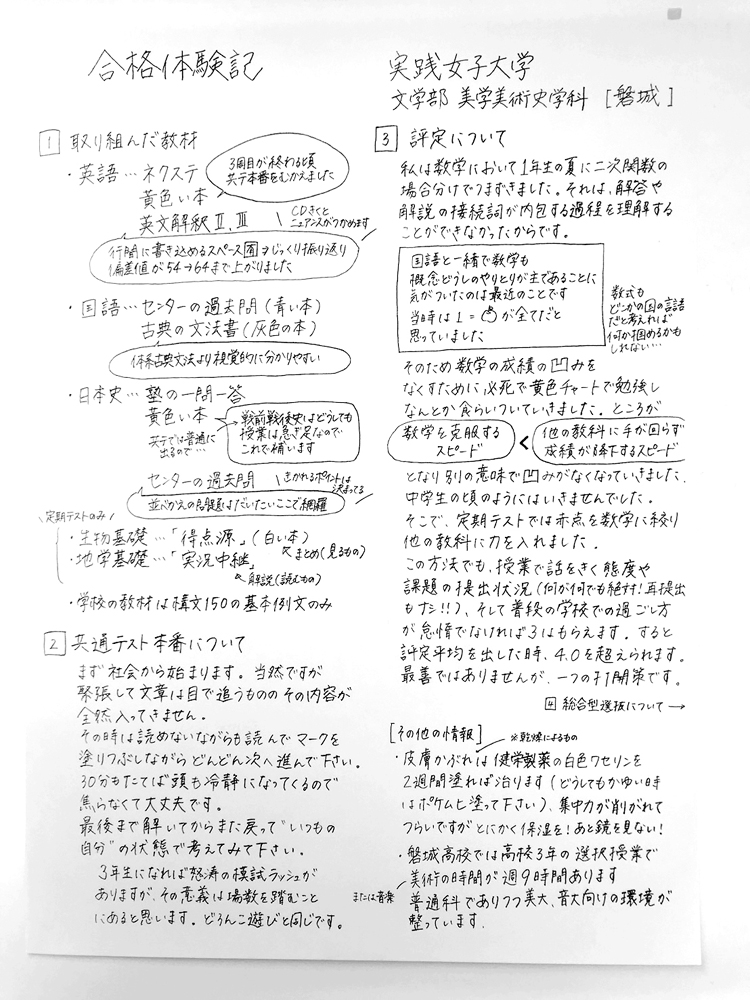 合格体験記
実践女子大学
文学部 美学美術史学科 [磐城]
1 取り組んだ教材
・英語…ネクステ
黄色い本
英文解釈Ⅱ、Ⅲ
3周目が終わる頃
共テ本番をむかえました
CDきくと
ニュアンスがつかめます
行間に書き込めるスペース圄⇒じっくり振り返り
偏差値が54→64まで上がりました
・国語…センターの過去問(青い本)
古典の文法書(灰色の本)
体系古典文法より視覚的に分かりやすい
・日本史…塾の一問一答
黄色い本
共テでは普通に
出るので…
戦前戦後史はどうしても
授業は急ぎ足なので
これで補います
センターの過去問
きかれるポイントは
決まってる
並べかえの問題はだいたいここで網羅
\定期テストのみ/
・生物基礎…「得点源」(白い本)
・地学基礎…「実況中継」
まとめ(見るもの)
解説(読むもの)
・学校の教材は構文150の基本例文のみ
2 共通テスト本番について
まず社会から始まります。当然ですが
緊張して文章は目で追うもののその内容が
全然入ってきません。
その時は読めないながらも読んでマークを
塗りつぶしながらどんどん次へ進んで下さい。
30分もたてば頭も冷静になってくるので
焦らなくて大丈夫です。
最後まで解いてからまた戻って"いつもの
自分"の状態で考えてみて下さい。
3年生になれば怒涛の模試ラッシュが
ありますが、その意義は場数を踏むこと
にあると思います。どろんこ遊びと同じです。
3 評定について
私は数学において1年生の夏に二次関数の
場合分けでつまずきました。それは、解答や
解説の接続詞が内包する過程を理解する
ことができなかったからです。
国語と一緒で数学も
概念どうしのやりとりが主であることに
気がついたのは最近のことです
当時は1=が全てだと
思っていました
数式も
どこかの国の言語
だと考えれば
何か掴めるかも
しれない…
そのため数学の成績の凹みを
なくすために必死で黄色チャートで勉強し
なんとか食らいついていきました。ところが
数学を克服する
スピード
<
他の教科に手が回らず
成績が降下するスピード
となり別の意味で凹みがなくなっていきました。
中学生の頃のようにはいきませんでした。
そこで、定期テストでは赤点を数学に絞り
他の教科に力を入れました。
この方法でも、授業で話をきく態度や
課題の提出状況(何が何でも絶対!再提出
もナシ!!)、そして普段の学校での過ごし方
が怠惰でなければ3はもらえます。すると
評定平均を出した時、4.0を超えられます。
最善ではありませんが、一つの打開策です。
4 総合型選抜について→
[その他の情報]
※乾燥によるもの
・皮膚かぶれは健栄製薬の白色ワセリンを
2週間塗れば治ります(どうしてもかゆい時
はポケムヒ塗って下さい)、集中力が削がれて
つらいですがとにかく保湿を!あと鏡を見ない!
・磐城高校では高校3年の選択授業で
美術の時間が週9時間あります
または音楽
普通科でありつつ美大、音大向けの環境が
整っています。